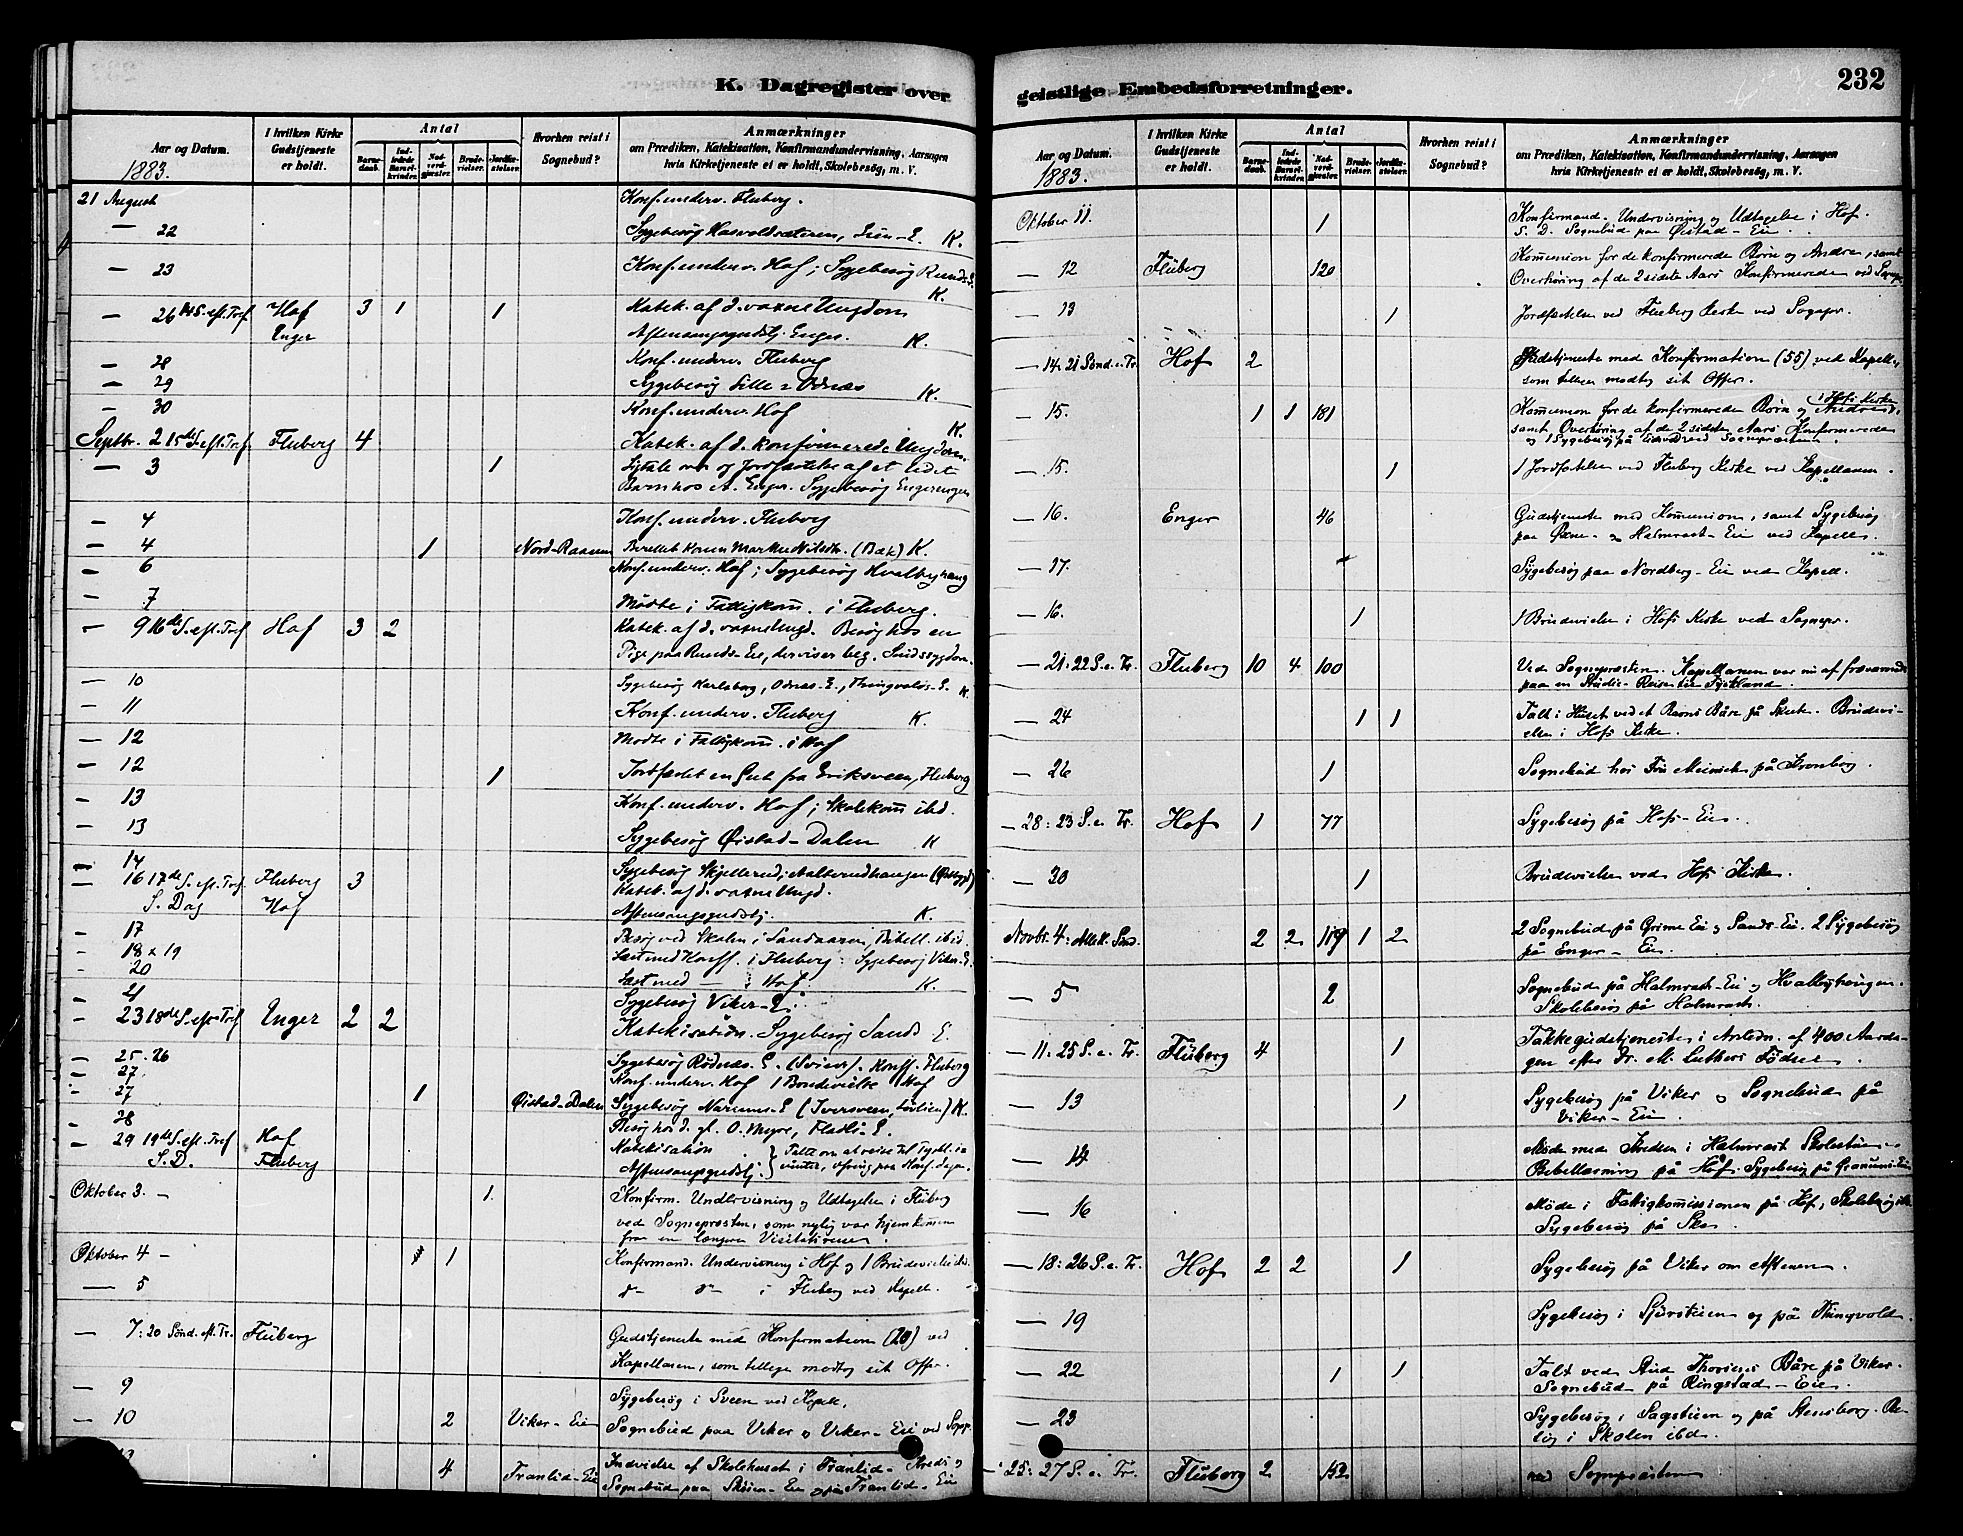 K. Dagregister over
Aar og Datum.
1883.
I hvilken Kirke Gudstjeneste er holdt.
Antal
Barnedaab.
Indledede Barselkvinder.
Nadverdgjester.
Brudevielser.
Jordfæstelser.
Hvorhen reist i Sognebud?
Anmærkninger
om Prædiken, Katekisation, Konfirmandundervisning, Aarsagen
hvis Kirketjeneste ei er holdt, Skolebesøg, m. V.
21 August Konf. underv. Fluberg.
— 22 Sygebesøg K.
— 23 Konf. underv. Hof; Sygebesøg
K.
— 26 14 S. eft. Tref. Hof 3 1 1 Katek. af d. voxne Ungdom
Enger Aftensangsgudstj. Enger. K.
— 28 Konf. underv. Fluberg
— 29 Sygebesøg Lille Odnæs K.
— 30 Konf. underv. Hof
K.
Septbr. 2 15de S. eft. Tref. Fluberg 4 Katek. af d. konfirmerede Ungdom.
— 3 1 og Jordfæstelse af et lidet
Barn hos A. Enger. Sygebesøg Engerengen
— 4 Konf. underv. Fluberg
— 4 1 Nord-Raaum Berettet Konen (Bæk) K.
— 6 Konf. underv. Hof; Sygebesøg Hvalbyhaug
— 7 Møde i Fattigkom. i Fluberg.
— 9 16de S. eft. Tref Hof 3 2 Katek. af d. voxne Ungd. Besøg hos en
Pige paa Runds-Eie, der viser beg. Sindssygdom.
— 10 Sygebesøg Karlsborg, Odnæs-E., Thingvolds-E. K.
— 11 Konf. underv. Fluberg K.
— 12 Møde i Fattigkom. i Hof
— 12 1 Jordfæstet en Gut fra Eriksveen, Fluberg
— 13 Konf. underv. Hof; Skolekom ibid.
— 13 Sygebesøg Øistad-Dalen K
— 14 Sygebesøg Skjellerud,
— 16 17de S. eft. Tref. Fluberg 3 Katek. af d. voxne Ungd.
S. Dag Hof Aftensangsgudstj. K.
— 17 Besøg ved Skolen i Sandaaren, Bibell. ibid.
— 18 & 19 Læst med Konff. i Fluberg. Sygebesøg Viker-E.
— 20 Læst med — i Hof. K.
— 21 Sygebesøg Viker-E.
— 23 18de S. eft. Tref Enger 2 2 Katekisation. Sygebesøg Sands E.
— 25. 26 Sygebesøg Rødnæs-E. Konff. Fluberg
— 27. Konf. underv. Hof 1 Brudevielse Hof
— 27 1 Øistad-Dalen Sygebesøg K.
— 28 Besøg hos d. gl. O. Myre, Fladli-E.
— 29 19de S. eft. Tref Hof Katekisation
S. D. Fluberg Aftensangsgudstj.
Oktober 3. — 1. Konfirm. Undervisning og Udtagelse i Fluberg
ved Sognepræsten, som nylig var hjemkommen
fra en længere Visitatsreise.
Oktober 4 — 1 Konfirmand. Undervisning i Hof og 1 Brudevielse ibid.
— 5 i Fluberg ved Kapell.
— 7: 20 Sønd. eft. Tr. Fluberg Gudstjeneste med Konfirmation (20) ved
Kapellanen, som tillige modtog sit Offer.
— 9 Sygebesøg i Sveen ved Kapell.
— 10 2 Viker-Eie Sognebud paa Viker og Viker-Eie ved Sogp.
4 Franlid-Eie Indvielse af Skolehuset i Franlid-Kreds og
Sognebud paa Skoien-Eie og paa Franlid-Eie
geistlige Embedsforretninger.
232
Aar og Datum.
1883.
I hvilken Kirke Gudstjeneste er holdt.
Antal
Barnedaab.
Indledede Barselkvinder.
Nadverdgjester.
Brudevielser.
Jordfæstelser.
Hvorhen reist i Sognebud?
Anmærkninger
om Prædiken, Katekisation, Konfirmandundervisning, Aarsagen
hvis Kirketjeneste ei er holdt, Skolebesøg, m. V.
Oktober 11. 1 Konfirmand. Undervisning og Udtagelse i Hof.
S. D. Sognebud paa Øistad-Eie.
— 12 Fluberg 120 Kommunion for de konfirmerede Børn og Andre, samt
Overhøring af de 2 sidste Aars Konfirmerede ved Sognepr.
— 13 1 Jordfæstelse ved Fluberg Kirke ved Sognepr.
— 14: 21 Sønd. e. Tr. Hof 2 Gudstjeneste med Konfirmation (55) ved Kapell.,
som tillige modtog sit Offer.
— 15. 1 1 181 Kommunion for de konfirmerede Børn og Andre i Hofs Kirke,
samt Overhøring af de 2 sidste Aars Konfirmerede
og 1 Sygebesøg på ved Sognepræsten.
— 15. 1 1 Jordfæstelse ved Fluberg Kirke ved Kapellanen.
— 16. Enger 46 Gudstjeneste med Kommunion, samt Sygebesøg
paa og Halmrast-Eie ved Kapell.
— 17. Sygebesøg paa Nordberg-Eie ved Kapell.
— 16. 1 1 Brudevielse i Hofs Kirke ved Sognepr.
— 21: 22 S. e. Tr. Fluberg 10 4 100 Ved Sognepræsten. Kapellanen var nu af fraværende
paa en Studie-Reise til Tyskland.
— 24 1 1 Talt i Huset ved et Barns Båre på Skute. Brudevi-
else i Hofs Kirke.
— 26 1 Sognebud hos Fru Meinich på Kronborg.
— 28: 23 S. e. Tr. Hof 1 77 Sygebesøg på Hofs-Eie.
— 30 1 Brudevielse ved Hofs Kirke.
Novbr. 4: Allek. Sønd. 2 2 119 1 2 2 Sognebud på Grime Eie og Sands-Eie. 2 Sygebesøg
på Enger-Eie.
— 5 2 Sognebud på Halmrast-Eie og Hvalbyhaugen.
Skolebesøg på Halmrast.
— 11: 25 S. e. Tr. Fluberg 4 1 Takkegudstjeneste i Anledn. af 400 Aarsda-
gen efter Dr. M. Luthers Fødsel.
— 13 1 Sygebesøg på Viker og Sognebud på
Viker-Eie.
— 14 Møde med Kredsen i Halmrast Skolestue.
Bibellæsning på Hof. Sygebesøg på Granums-Eie
— 16 Møde i Fattigkommissionen på Hof, Skolebesøg ibd.
Sygebesøg på
— 18: 26 S. e. Tr. Hof 2 2 1 Sygebesøg på Viker om Aftenen.
— 19 Sygebesøg i og på Thingvold.
— 22 1 1 Talt ved Stud Thorsens Båre på Viker.
Sognebud på Ringstad-Eie.
— 23 Sygebesøg i Sagstuen og på Stensborg. Be-
søg i Skolen ibd.
— 25: 27 S. e. Tr. Fluberg 2 152 ved Sognepræsten